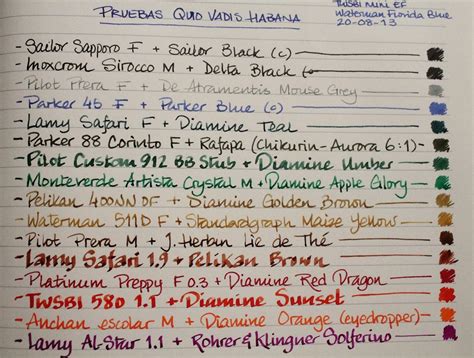 PRUEBAS QUO VADIS HABANA
TWSBI MINI EF
Waterman Florida Blue
20-08-13
- Sailor Sapporo F + Sailor Black (c)
- Inoxcrom Sirocco M + Delta Black
- Pilot Prera F + De Atramentis Mouse Grey
- Parker 45 F + Parker Blue (c)
- Lamy Safari F + Diamine Teal
- Parker 88 Corinto F + Rafapa (Chikurin-Aurora 6:1)
- Pilot Custom 912 BB Stub + Diamine Umber
- Monteverde Artista Crystal M + Diamine Apple Glory
- Pelikan 400NN DF + Diamine Golden Brown
- Waterman 511D F + Standardgraph Maize Yellow
- Pilot Prera M + J. Herban Lie de Thé
- Lamy Safari 1.9 + Pelikan Brown
- Platinum Preppy F 0.3 + Diamine Red Dragon
- TWSBI 580 1.1 + Diamine Sunset
- Anchan escolar M + Diamine Orange (eyedropper)
- Lamy Al-Star 1.1 + Rohrer & Klingner Solferino